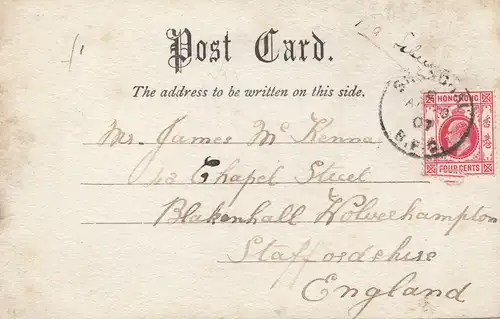 Post Card.
The address to be written on this side.
SHANGHAI
B
07
B.P.O.
HONG KONG
FOUR CENTS
Mr. James McKenna
42 Chapel Street
Blakenhall Wolverhampton
Staffordshire
England